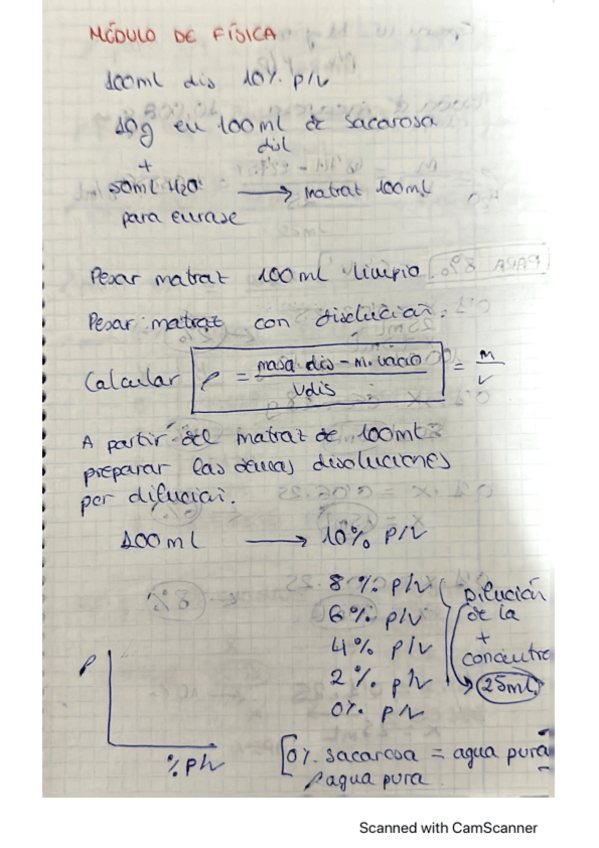 MÓDULO DE FÍSICA
100ml dis 10% p/v
10g en 100ml de sacarosa
dis
+
50ml H2O → matrat 100ml
para enrase
Pesar matrat 100ml limpio
Pesar matrat con disolución.
Calcular ρ = masa dis - m. vacio / Vdis = m / v
A partir del matrat de 100ml
preparar las demás disoluciones
por dilución.
100ml → 10% p/v
8% p/v
6% p/v
4% p/v
2% p/v
0% p/v
Dilución
de la
+
concentra
25ml
ρ
% p/v
0% sacarosa = agua pura
ρ agua pura
Scanned with CamScanner